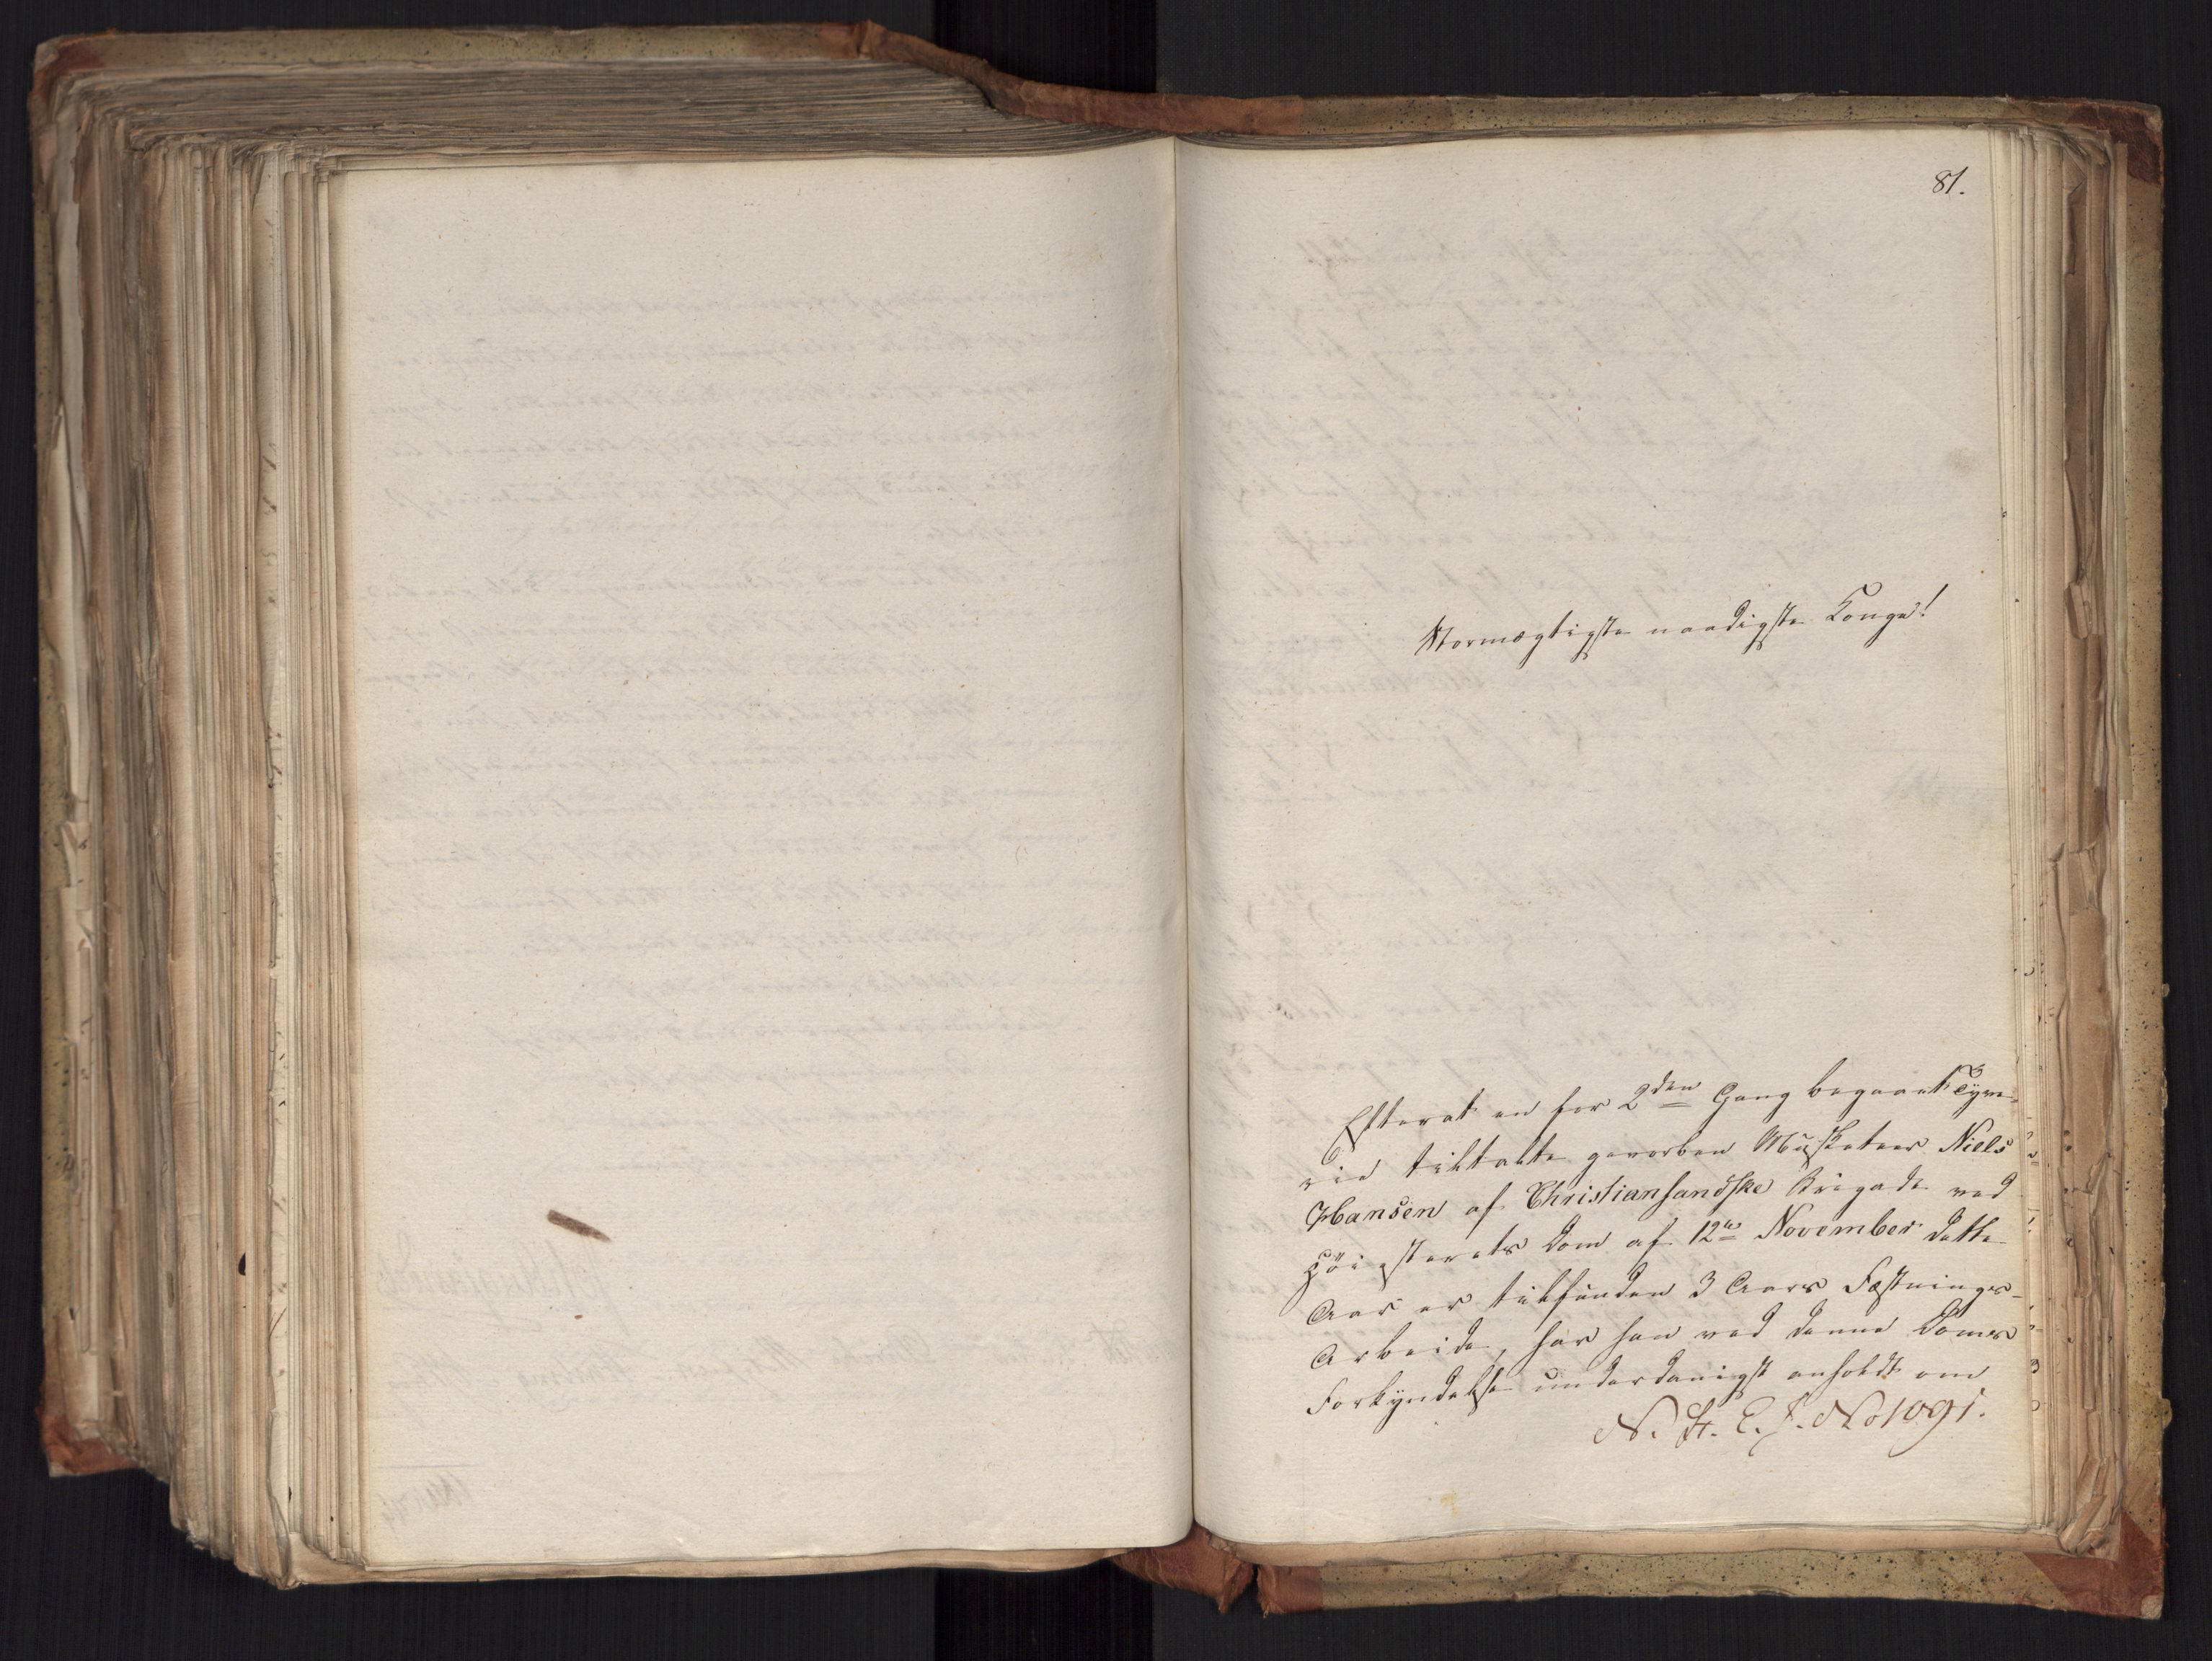 81.
Stormægtigste naadigste Konge!
Efterat en for 2den Gang begaaet Tyve-
rie tiltalte gevorben Musketeer Niels
Hansen af Christiansandske Brigade ved
Höiesterets Dom af 12te November dette
Aar er tilfunden 3 Aars Fæstnings-
Arbeide, har han ved denne Doms
Forkyndelse underdanigst anholdt om
N. St. E. J. No 1091.